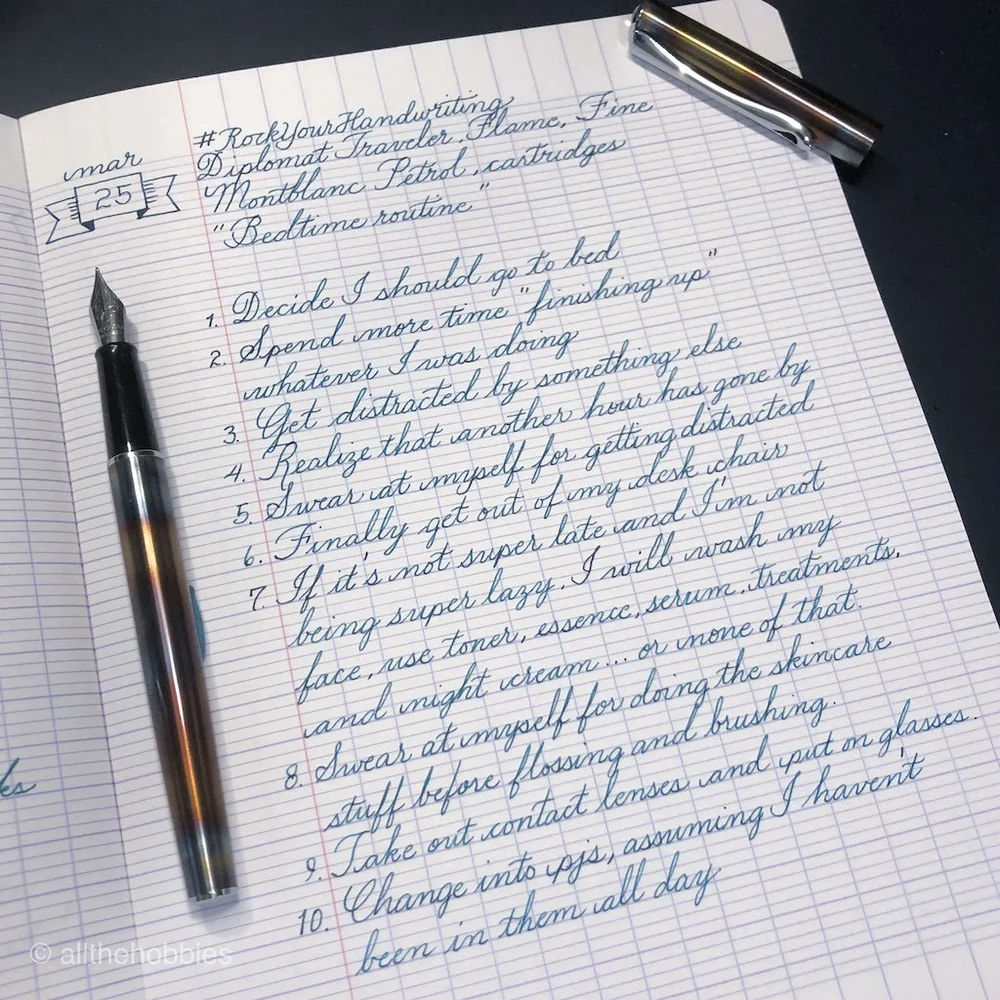 mar
25
#RockYourHandwriting
Diplomat Traveler, Flame, Fine
Montblanc Petrol, cartridges
"Bedtime routine"
1. Decide I should go to bed
2. Spend more time "finishing up"
whatever I was doing
3. Get distracted by something else
4. Realize that another hour has gone by
5. Swear at myself for getting distracted
6. Finally get out of my desk chair
7. If it's not super late and I'm not
being super lazy, I will wash my
face, use toner, essence, serum, treatments,
and night cream... or none of that.
8. Swear at myself for doing the skincare
stuff before flossing and brushing.
9. Take out contact lenses and put on glasses.
10. Change into pjs, assuming I haven't
been in them all day
© allthehobbies